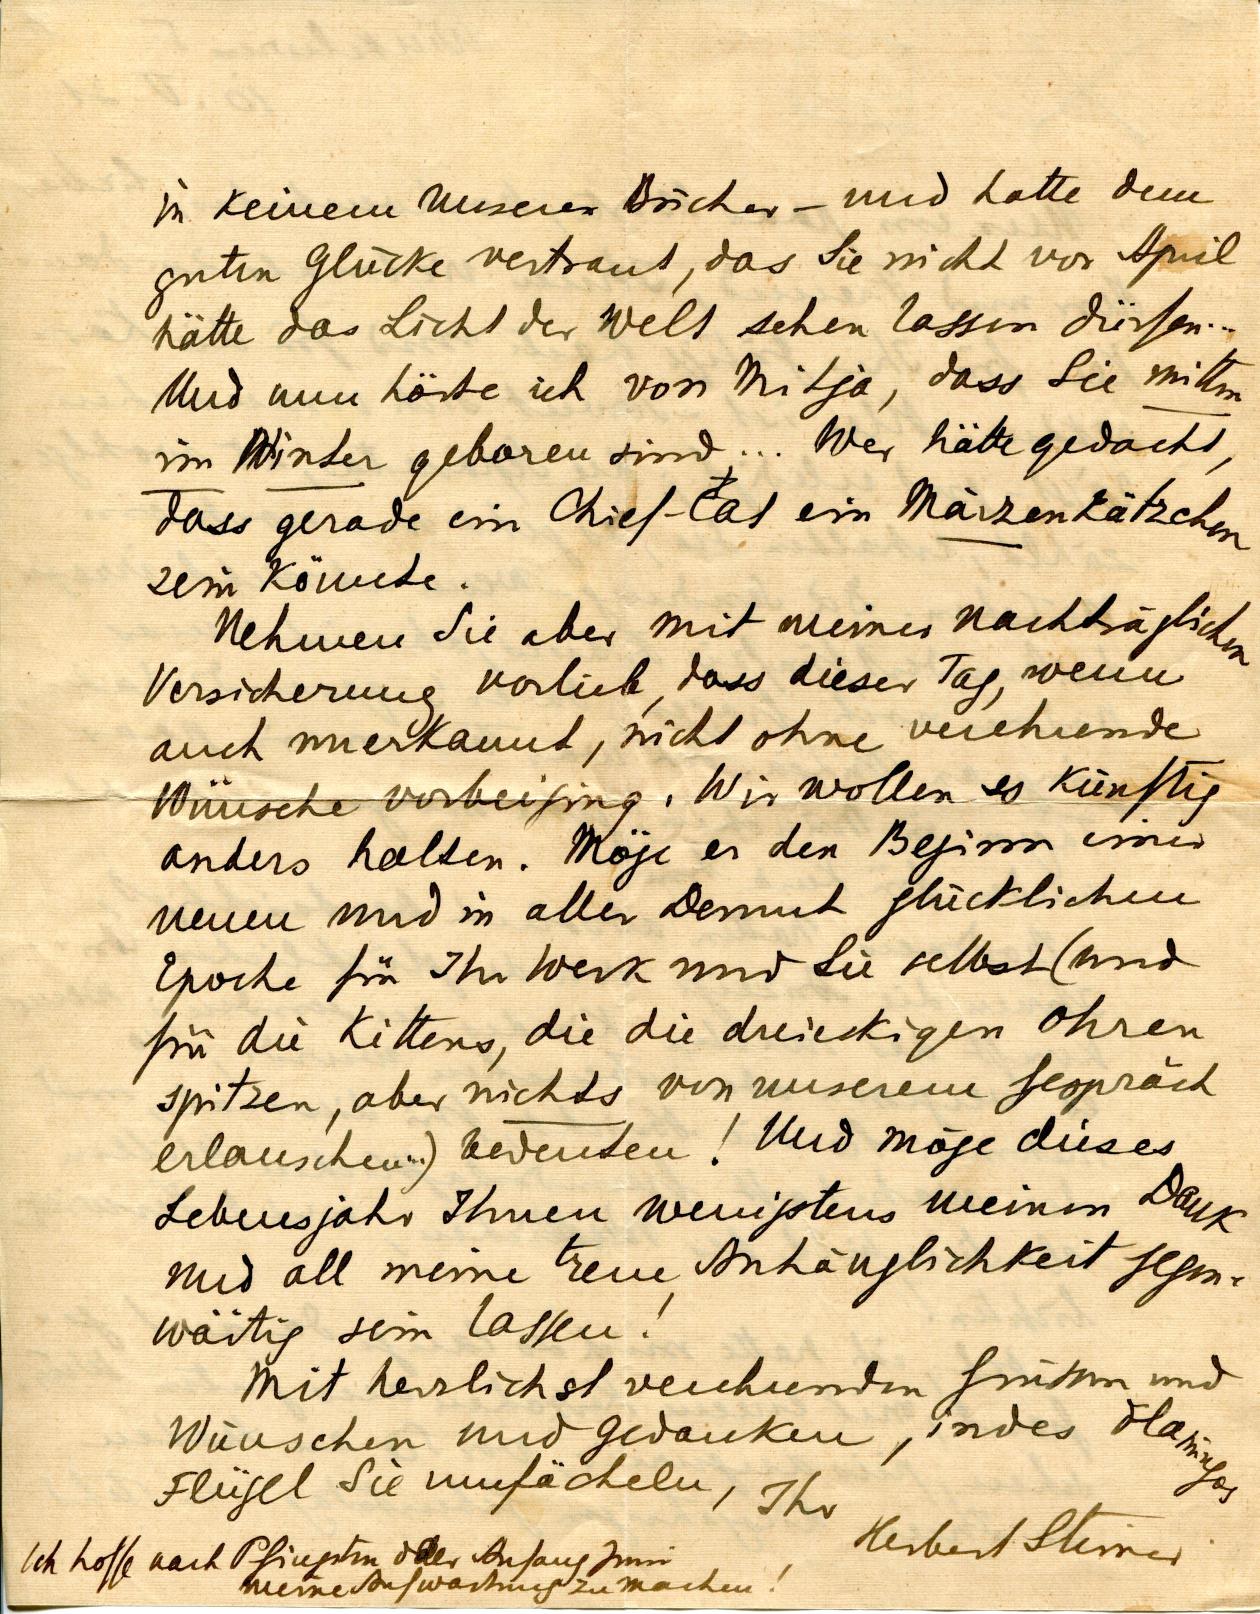 in keinem unserer Bücher – und hatte dem
guten Glücke vertraut, das Sie nicht vor April
hätte das Licht der Welt sehen lassen dürfen...
Und nun hörte ich von Mitja, dass Sie mitten
im Winter geboren sind... Wer hätte gedacht,
dass gerade ein Chief-Cat ein Märzenkätzchen
sein könnte.
Nehmen Sie aber mit meiner nachträglichen
Versicherung vorlieb, dass dieser Tag, wenn
auch unerkannt, nicht ohne verehrende
Wünsche vorbeiging. Wir wollen es künftig
anders halten. Möge er den Beginn einer
neuen und in aller Demut glücklichen
Epoche für Ihr Werk und Sie selbst (und
für die Kittens, die die dreieckigen Ohren
spitzen, aber nichts von unserem Gespräch
erlauschen...) bedeuten! Und möge dieses
Lebensjahr Ihnen wenigstens meinen Dank
und all meine treue Anhänglichkeit gegen-
wärtig sein lassen!
Mit herzlichst verehrenden Grüssen und
Wünschen und Gedanken, indes Flamingos
Flügel Sie umfächeln, Ihr
Herbert Steiner
Ich hoffe nach Pfingsten oder Anfang Juni
meine Aufwartung zu machen!